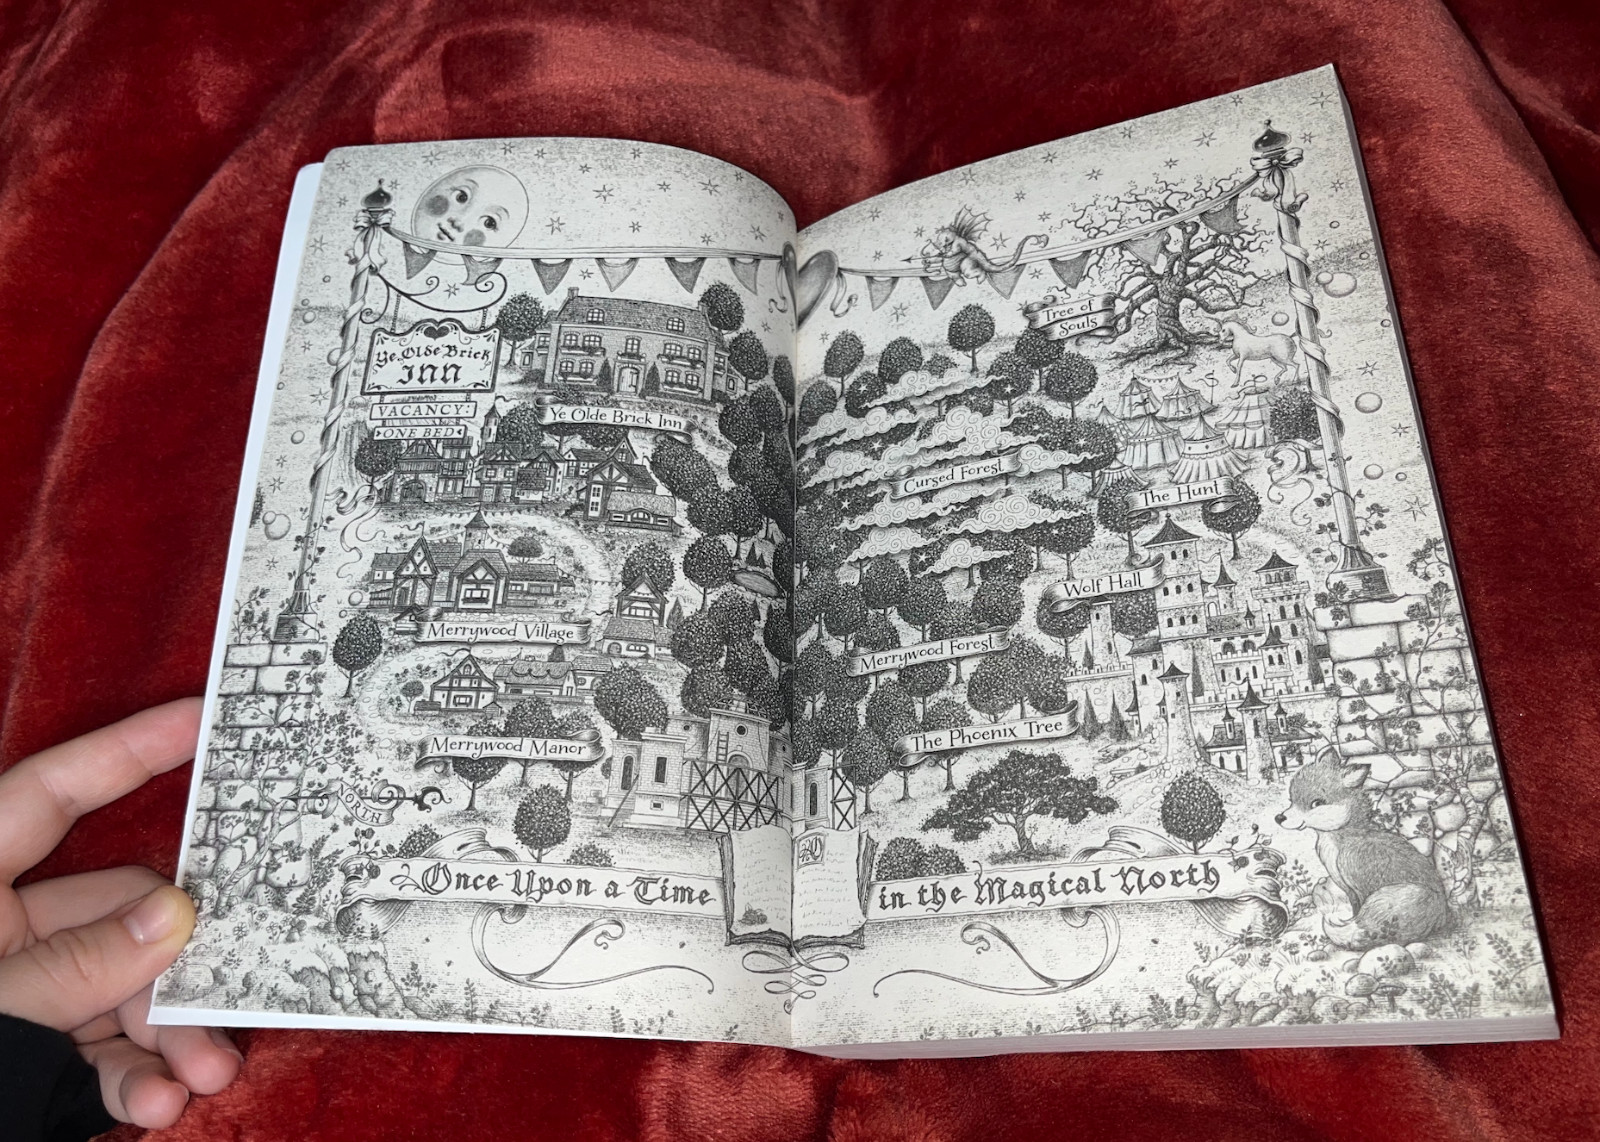 Ye Olde Brick
Inn
VACANCY:
ONE BED
Ye Olde Brick Inn
Merrywood Village
Merrywood Manor
NORTH
Once Upon a Time
Tree of
Souls
Cursed Forest
The Hunt
Wolf Hall
Merrywood Forest
The Phoenix Tree
in the Magical North